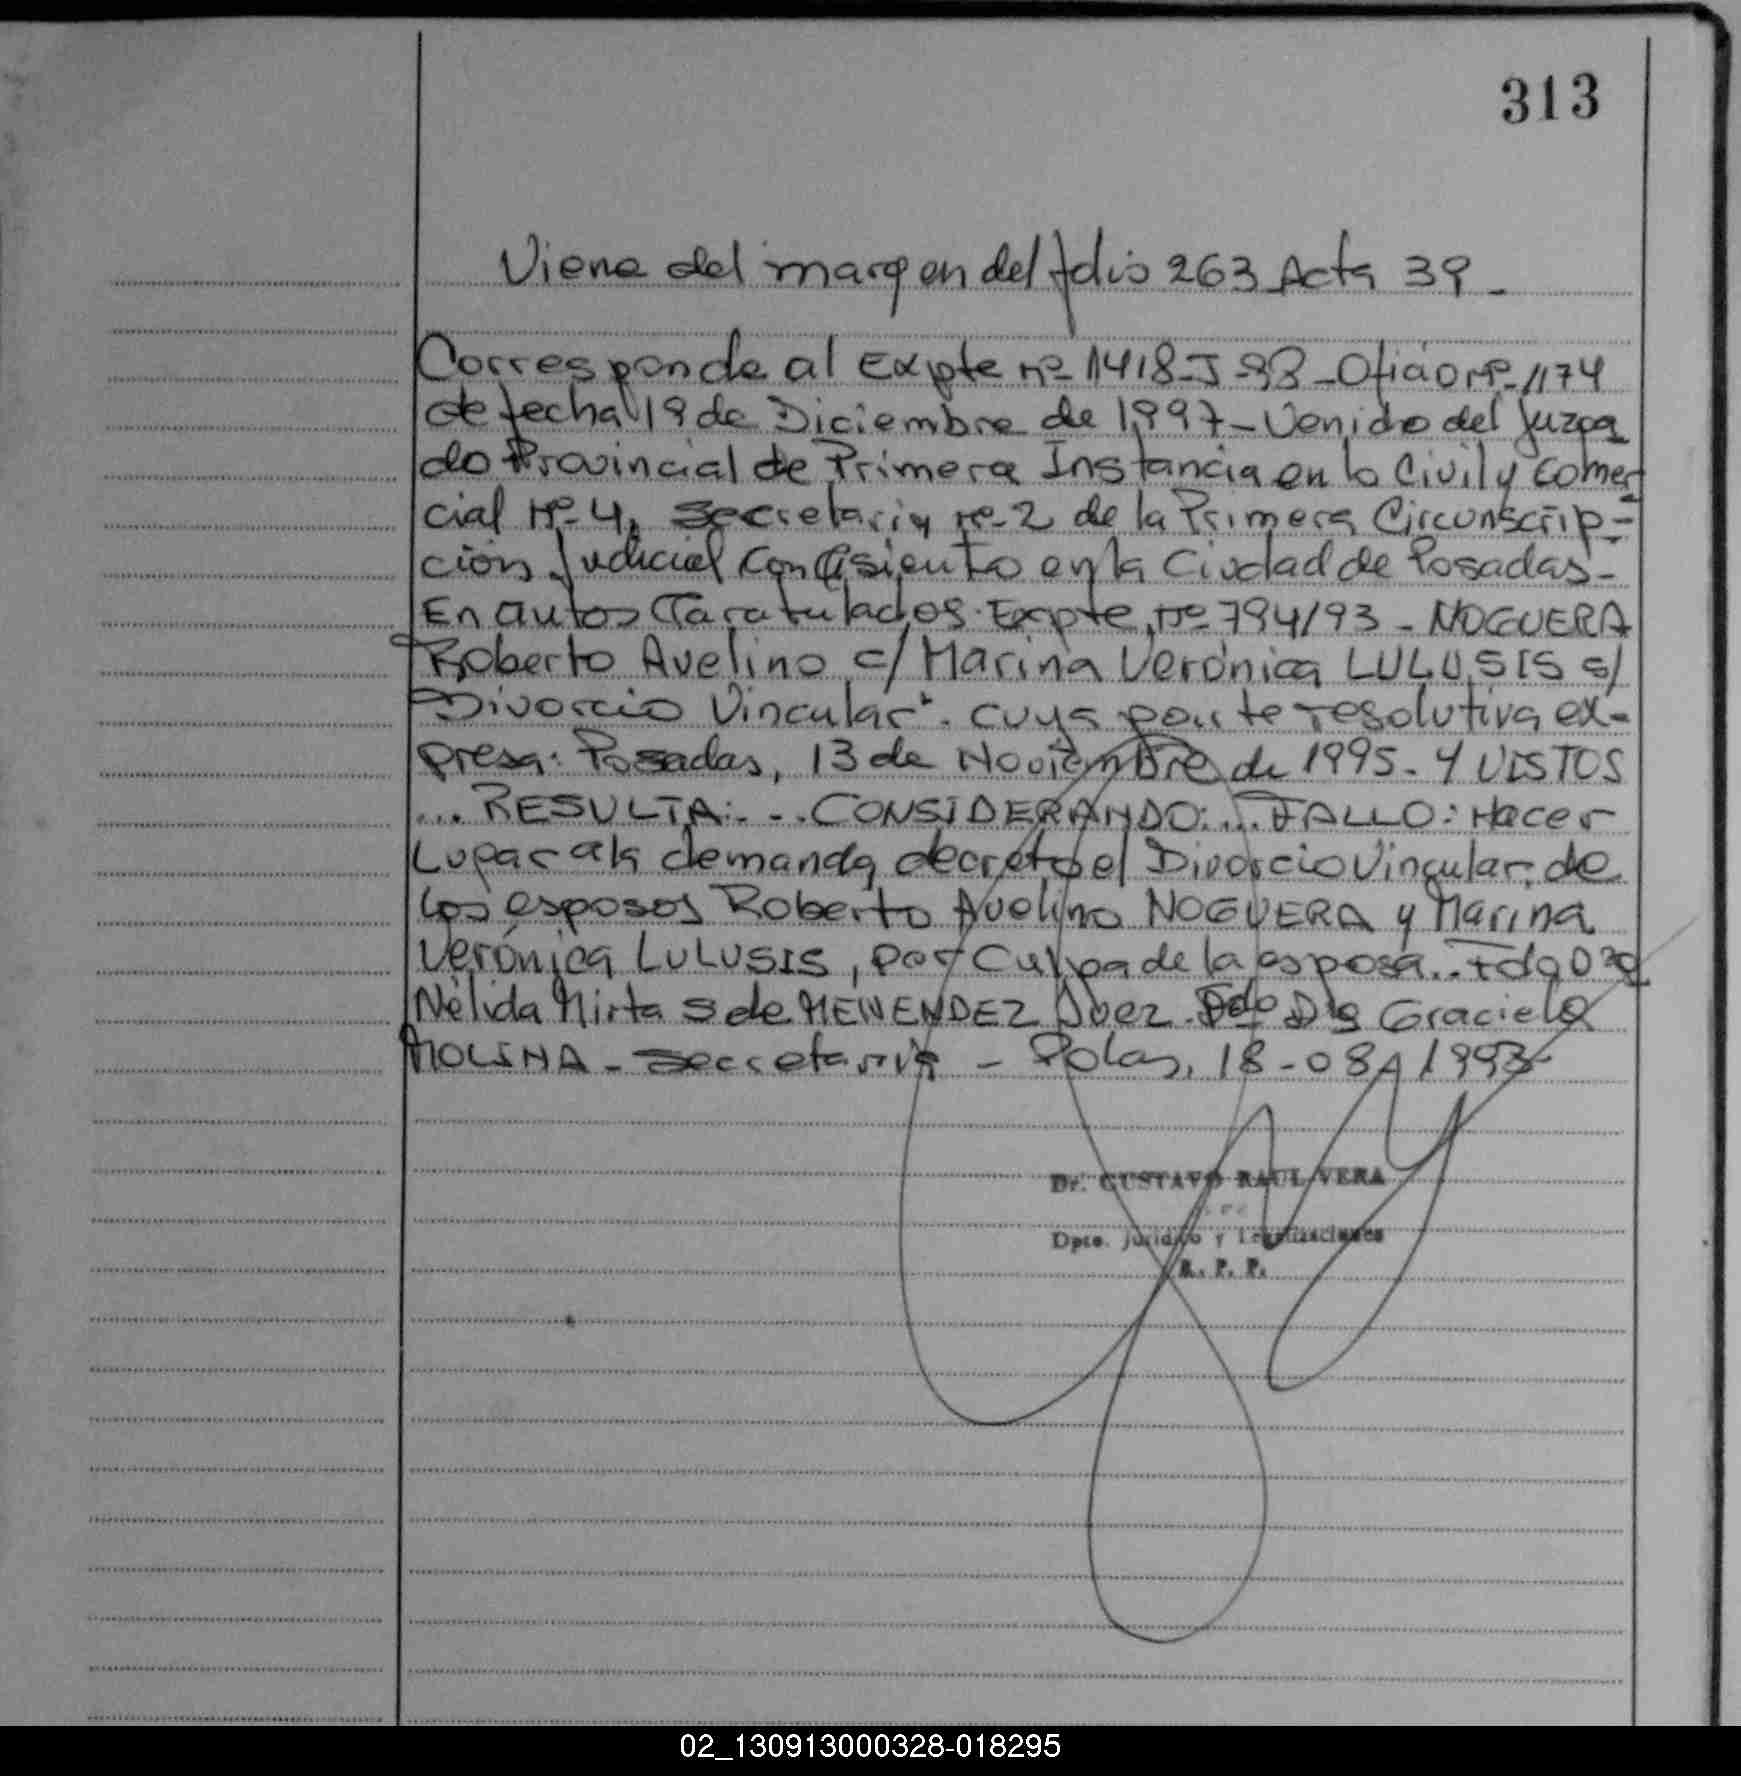 313
Viene del margen del folio 263 Acta 39-
Corresponde al Expte nº 1418-J-98-Oficio nº 1174
de fecha 19 de Diciembre de 1997-Venido del Juzga
do Provincial de Primera Instancia en lo Civil y Comer
cial Nº-4, Secretaria nº-2 de la Primera Circunscrip-
ción Judicial con Asiento en la Ciudad de Posadas-
En autos Caratulados Expte nº 794/93 - NOGUERA
Roberto Avelino c/ Marina Verónica LULUSIS s/
Divorcio Vincular". cuya parte resolutiva ex-
presa: Posadas, 13 de Noviembre de 1995- Y VISTOS
... RESULTA:... CONSIDERANDO:... FALLO: Hacer
Lugar a la demanda decreto el Divorcio Vincular de
los esposos Roberto Avelino NOGUERA y Marina
Verónica LULUSIS, por Culpa de la esposa.. Fdo Dra
Nélida Mirta S de MENENDEZ Juez. Fdo Dra Graciela
MOLINA - Secretaria - Pdas, 18-08-1998-
Dr. GUSTAVO RAUL VERA
Dpto. Jurídico y Legalizaciones
R. P. P.
02_130913000328-018295